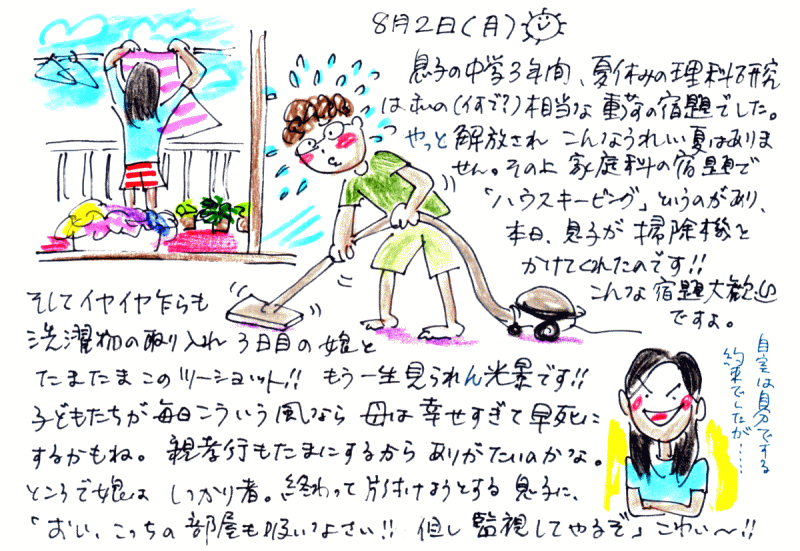 8月2日(月)
息子の中学3年間、夏休みの理科研究
は私の(イすで?)相当な重荷の宿題でした。
やっと解放され こんなうれしい夏はありま
せん。その上 家庭科の宿題で
「ハウスキーピング」というのがあり、
本日、息子が 掃除機を
かけてくれたのです!!
こんな宿題大歓迎
ですよ。
そしてイヤイヤ乍らも
洗濯物の取り入れ 3日目の娘と
たまたまこのツーショット!! もう一生見られん光景です!!
子どもたちが毎日こういう風なら 母は幸せすぎて早死に
するかもね。 親孝行もたまにするから ありがたいのかな。
ところで娘は しっかり者。終わって片付けようとする息子に、
「おい、こっちの部屋も吸いなさい!! 但し監視してやるぞ」こわい〜!!
自室は自分でする
約束でしたが……